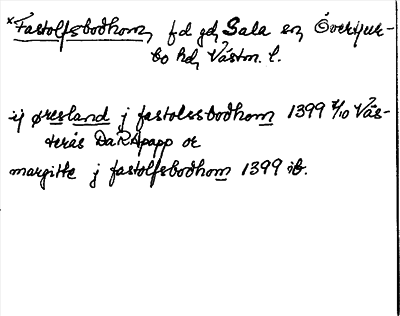 *Fastolfsbodhom, fd gd, Sala sn, Övertjur-
bo hd, Västm. l.
ij øresland j fastolssbodhom 1399 7/10 Väs-
terås DaRApapp or
margitte j fastolfsbodhom 1399 ib.